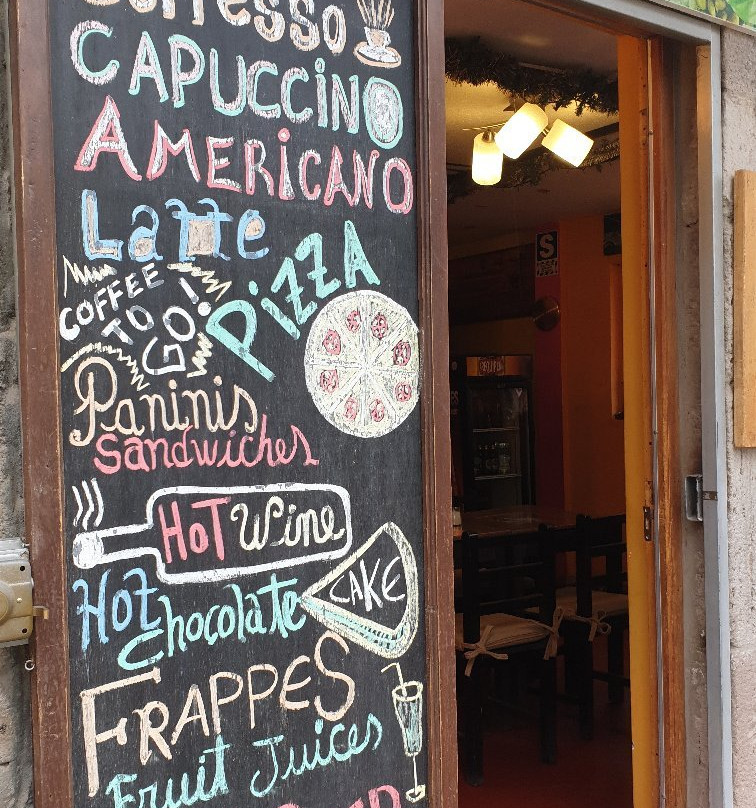 Espresso
CAPUCCINO
AMERICANO
Latte
COFFEE
TO
GO!
PIZZA
Paninis
Sandwiches
HOT Wine
CAKE
Hot
Chocolate
FRAPPES
Fruit Juices
S